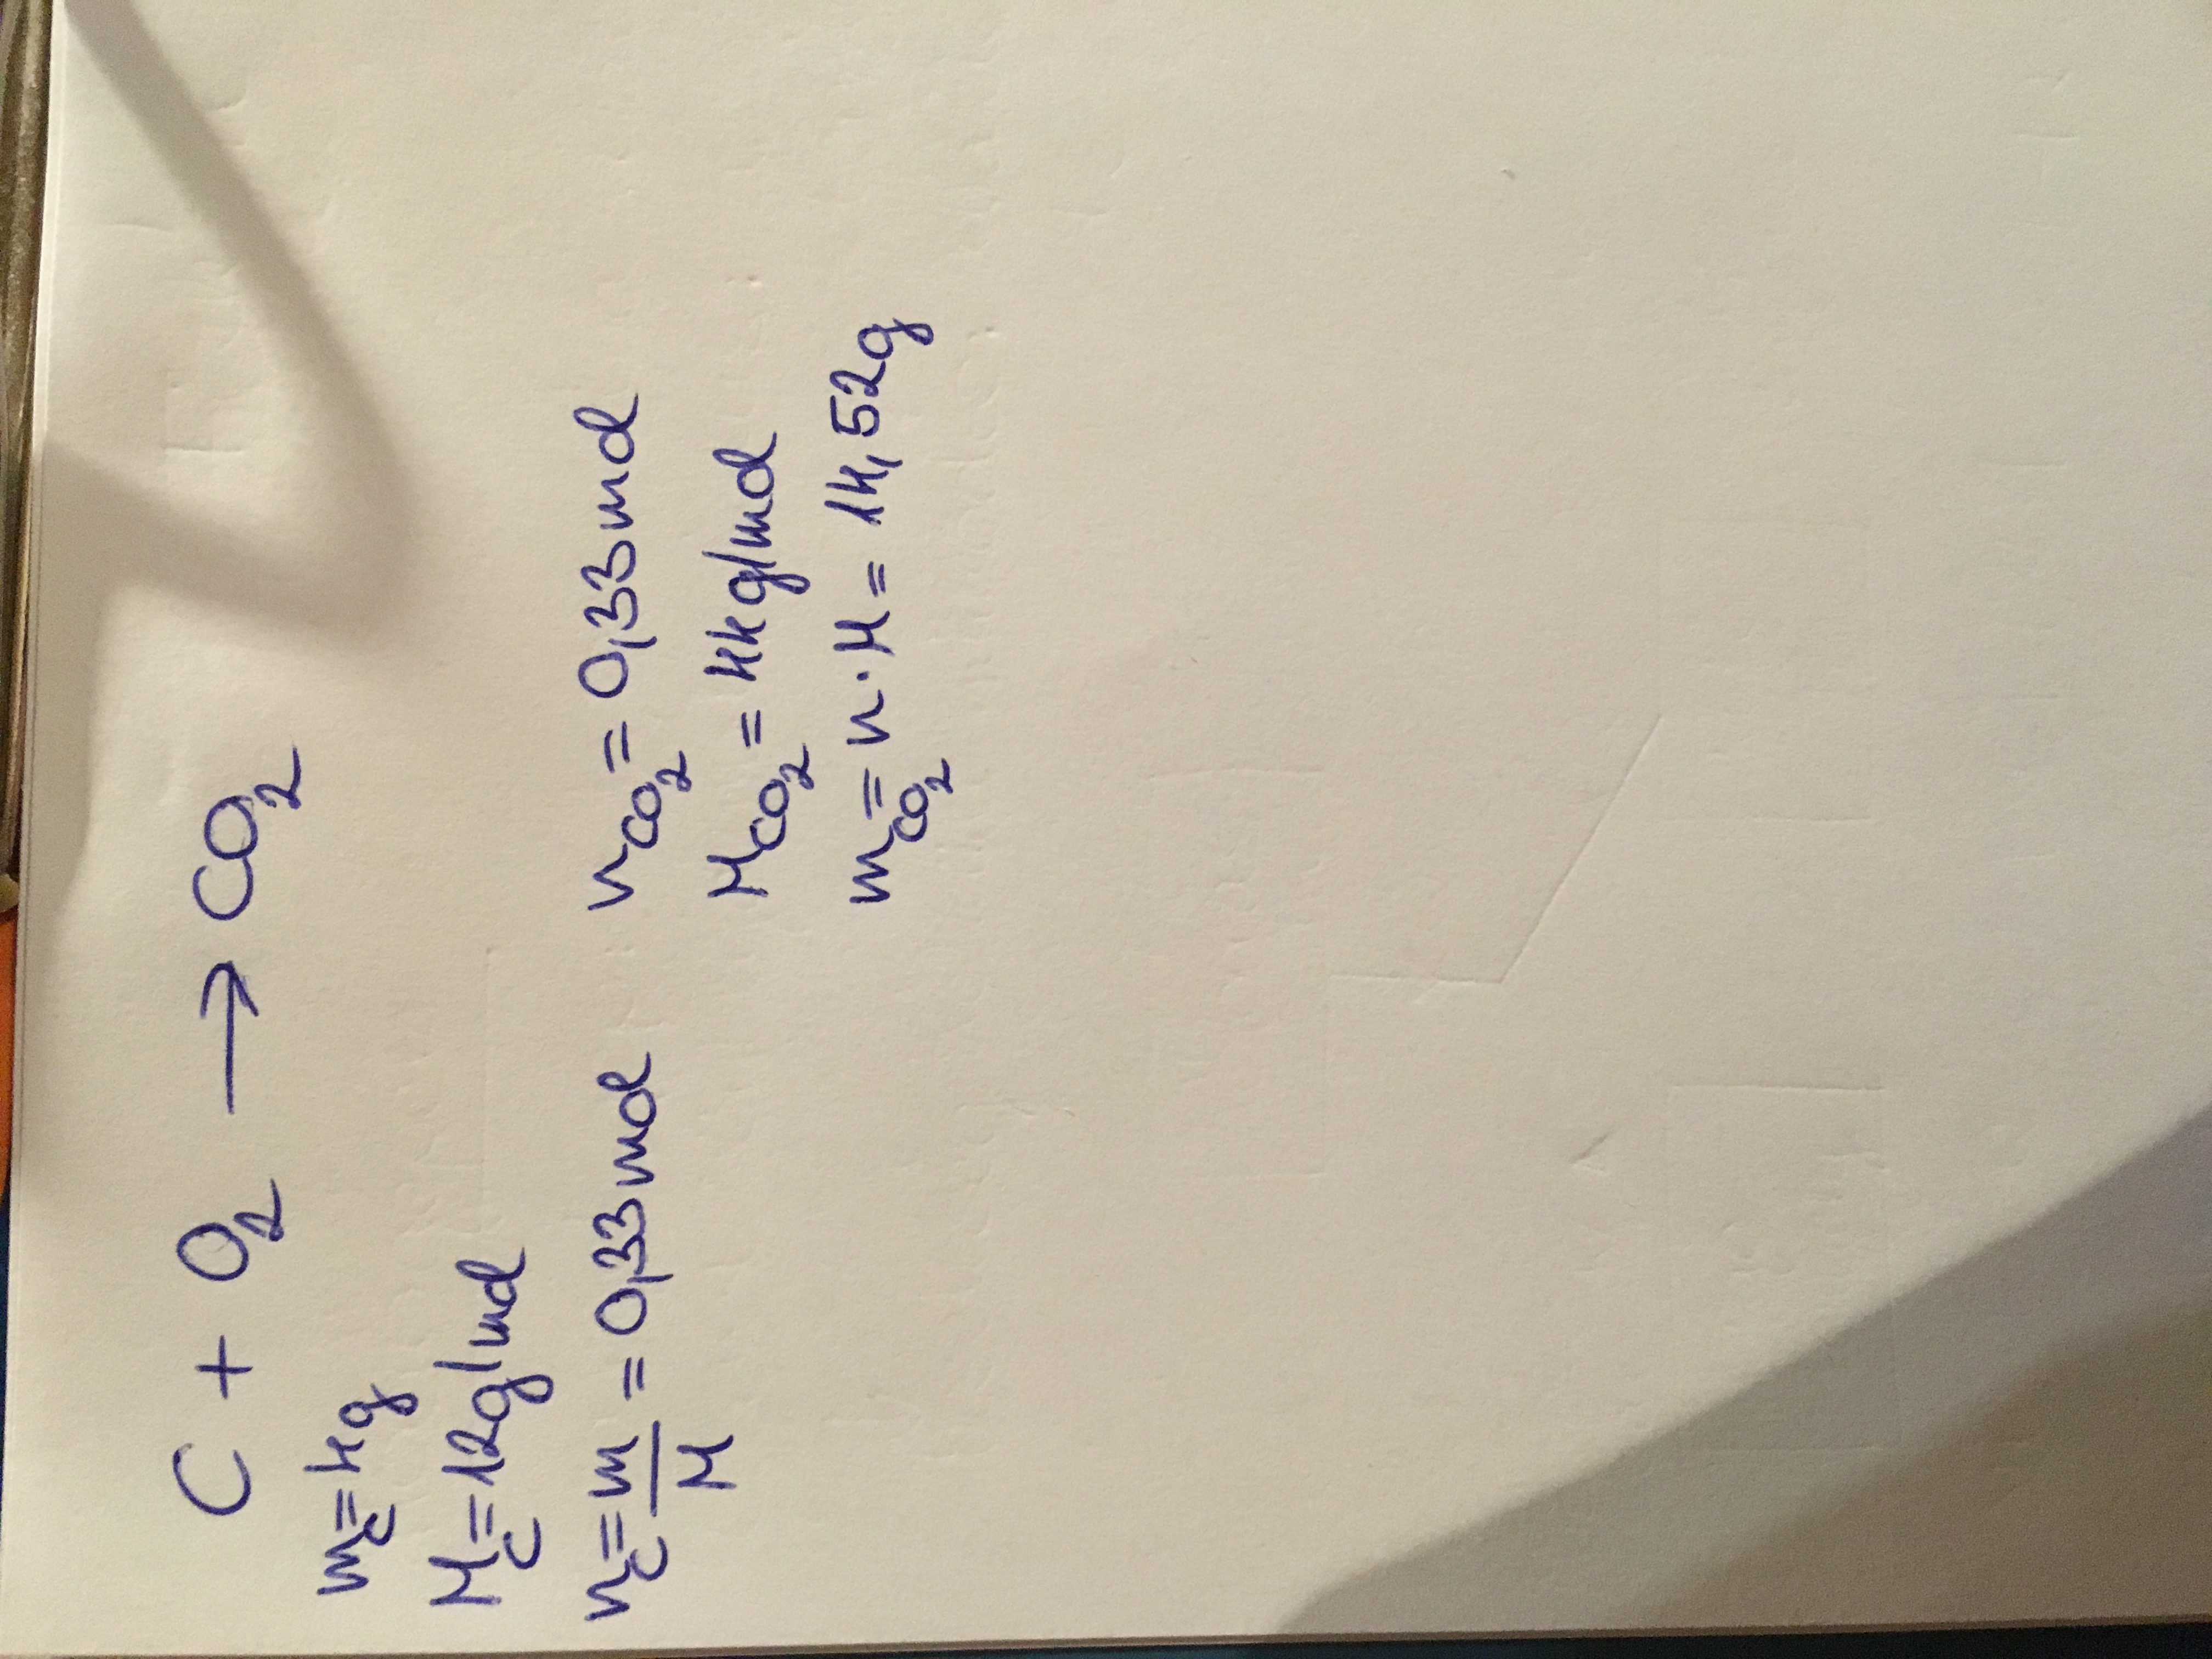 C + O₂ → CO₂
m_C = 4g
M_C = 12g/mol
n_C = m/M = 0,33mol
n_CO₂ = 0,33mol
M_CO₂ = 44g/mol
m_CO₂ = n · M = 14,52g